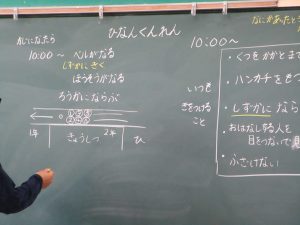 ひなんくんれん
かじになたら
10:00～ ベルがなる
しずかにきく
ほうそうがなる
ろうかにならぶ
1年 きょうしつ 2年 ひ
10:00～
いつも
きをつける
こと
なにかあったと
・くつをかかとま
・ハンカチをも
・しずかになら
・おはなしする人を
目をつないで
・ふざけない